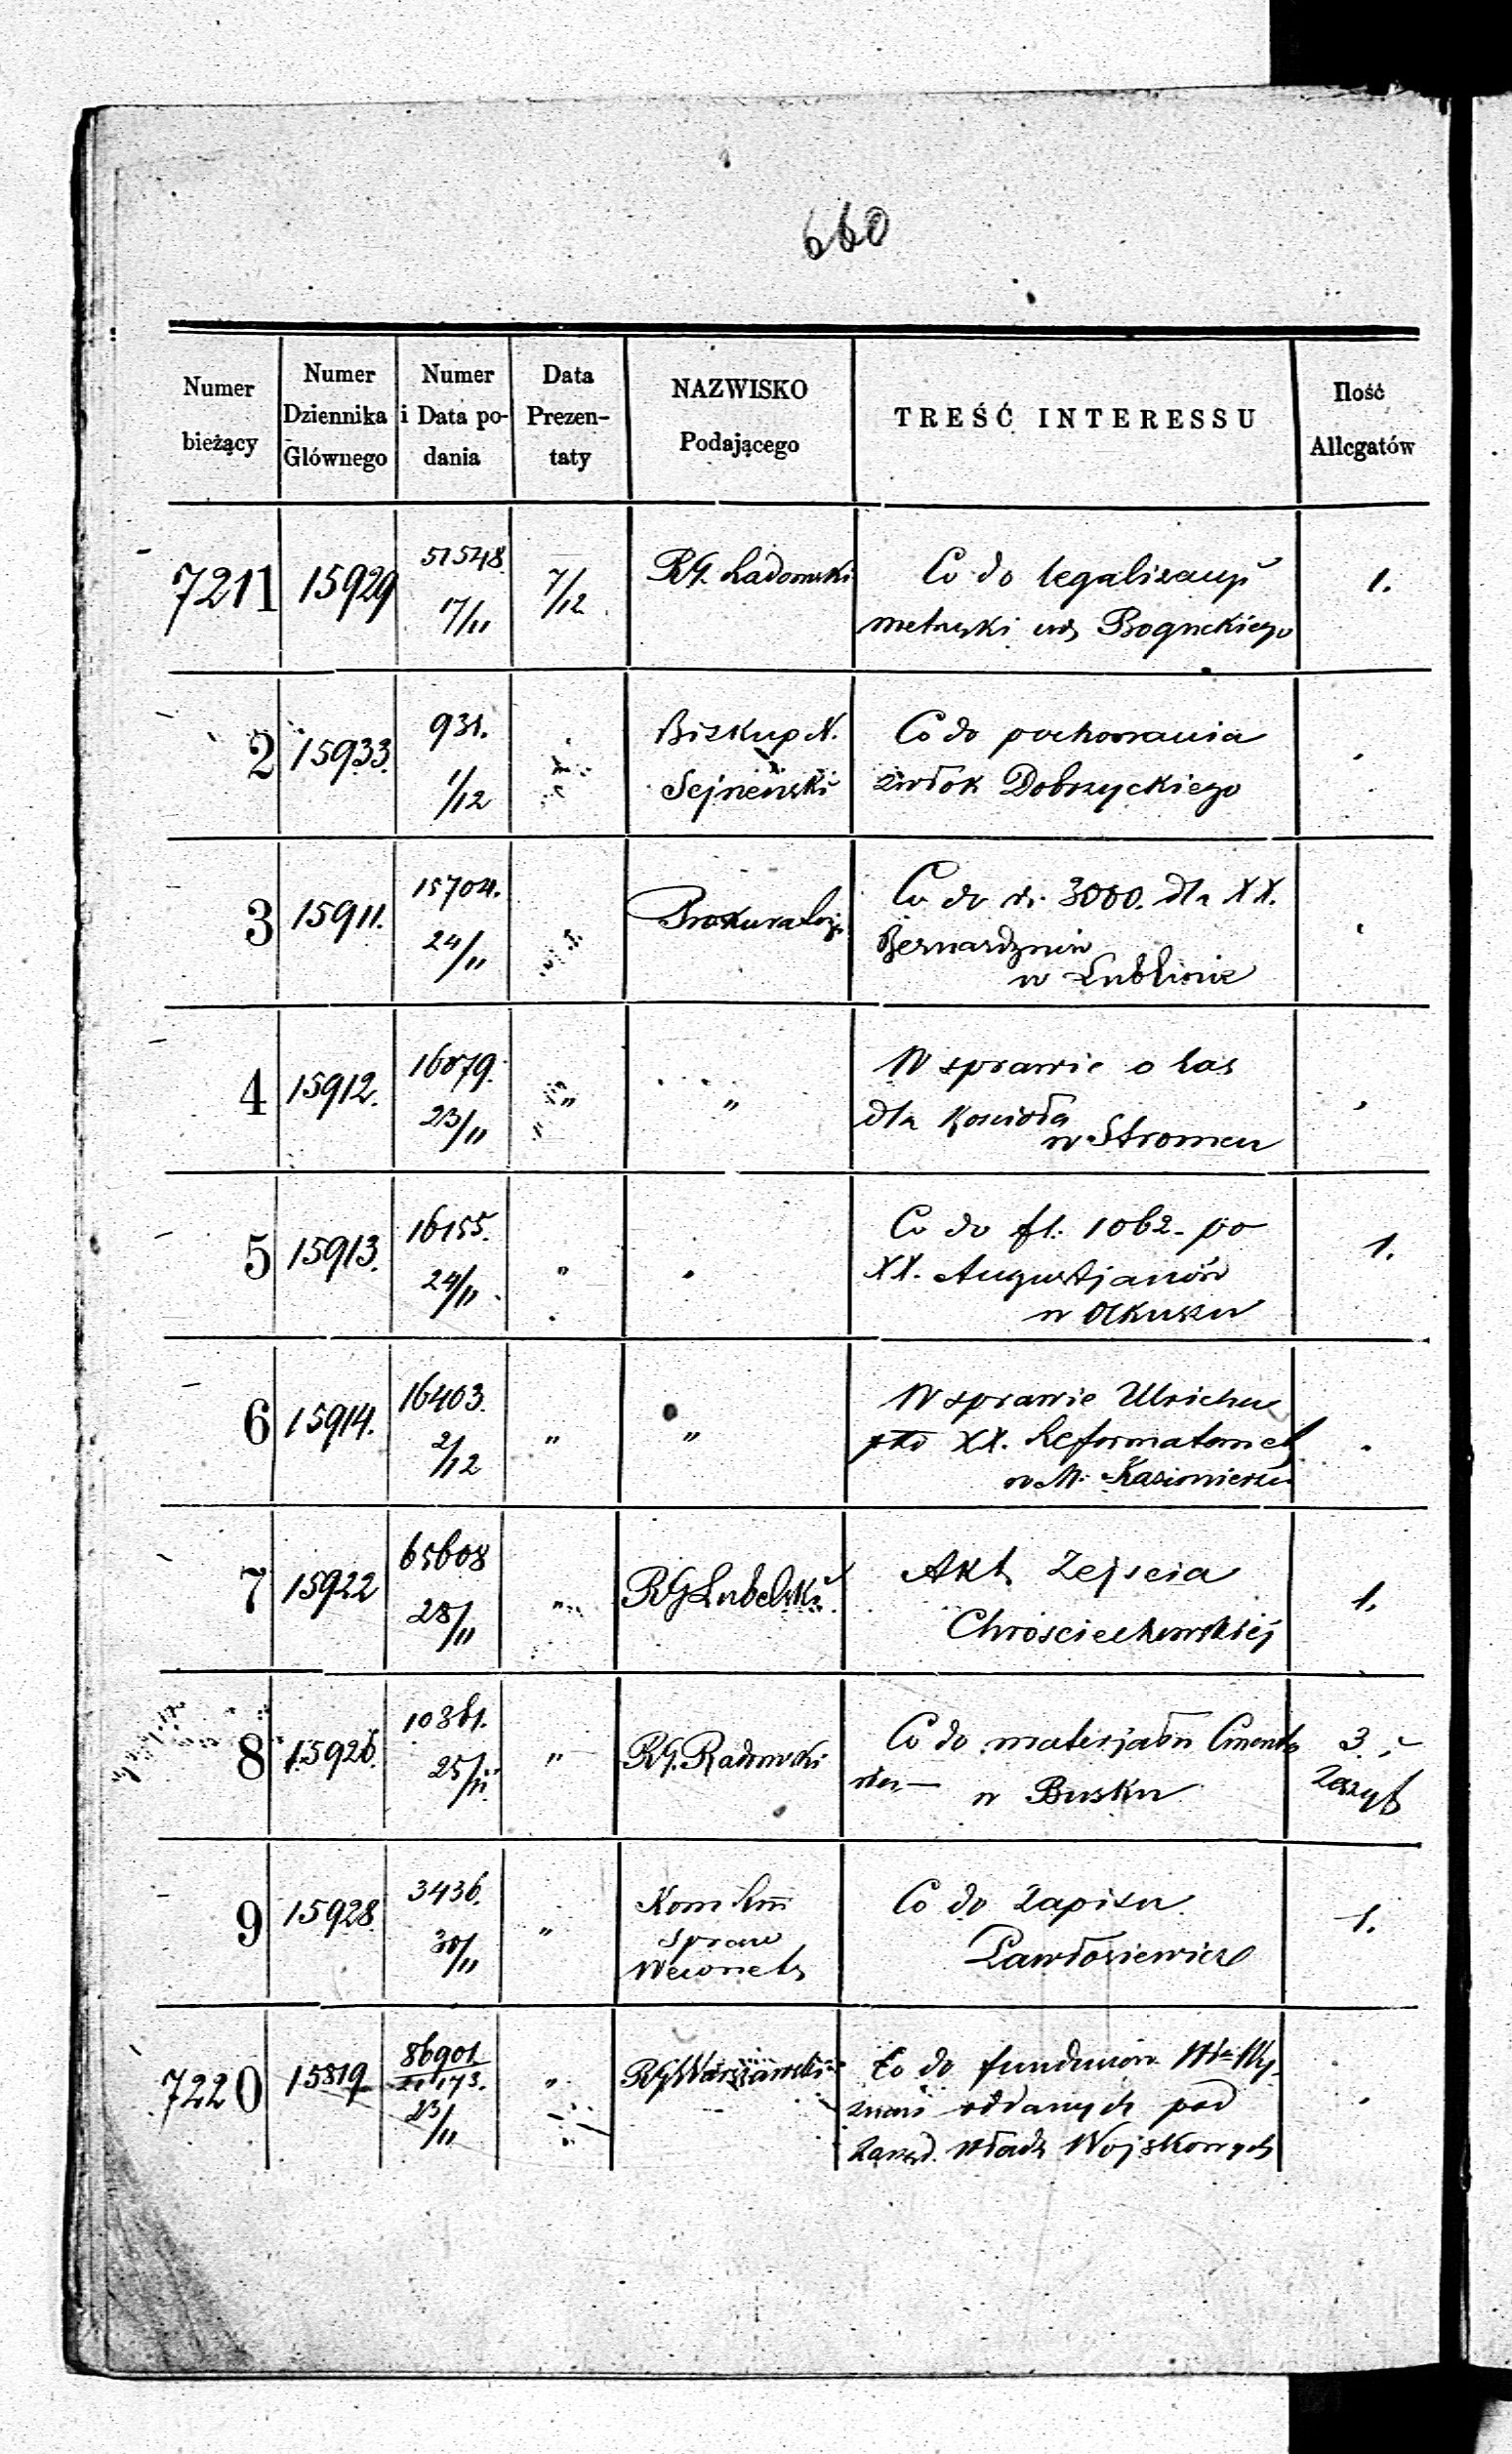 660
Numer bieżący
Numer Dziennika Głównego
Numer i Data podania
Data Prezentaty
NAZWISKO Podającego
TREŚĆ INTERESSU
Ilość Allegatów
7211 15929 51548 17/11 7/12 RG. Radomski Co do legalizacyi 1.
metryki Boguckiego
2 15933. 931. 1/12 Biskup N. Co do pochowania
Sejneński zwłok Dobrzyckiego
3 15911. 15704. 24/11 Prokuratorja Co do rs. 3000. dla XX.
Bernardynów
w Lublinie
4 15912. 16079. 23/11 " " W sprawie o las
dla Kościoła
w Stromcu
5 15913. 16155. 24/11 " Co do fl. 1062. po 1.
XX. Augustjanów
w Olkuszu
6 15914. 16403. 2/12 " " W sprawie Ulricha
XX. Reformatom
w M. Kazimierzu
7 15922 65608 28/11 " RG Lubelski Akt Zejscia 1.
Chrościechowskiej
8 15926. 10361. 25/11 " RG. Radomski Co do materjałów Cmenta 3.
rza — w Busku Zeszyt
9 15928. 3436. 30/11 " Kom Co do Zapisu 1.
Spraw Pawłosiewicz
Wewnet
7220 15819 86901 23/11 " RG Warszawski Co do funduszów
oddanych pod
Zarząd. Władz Wojskowych